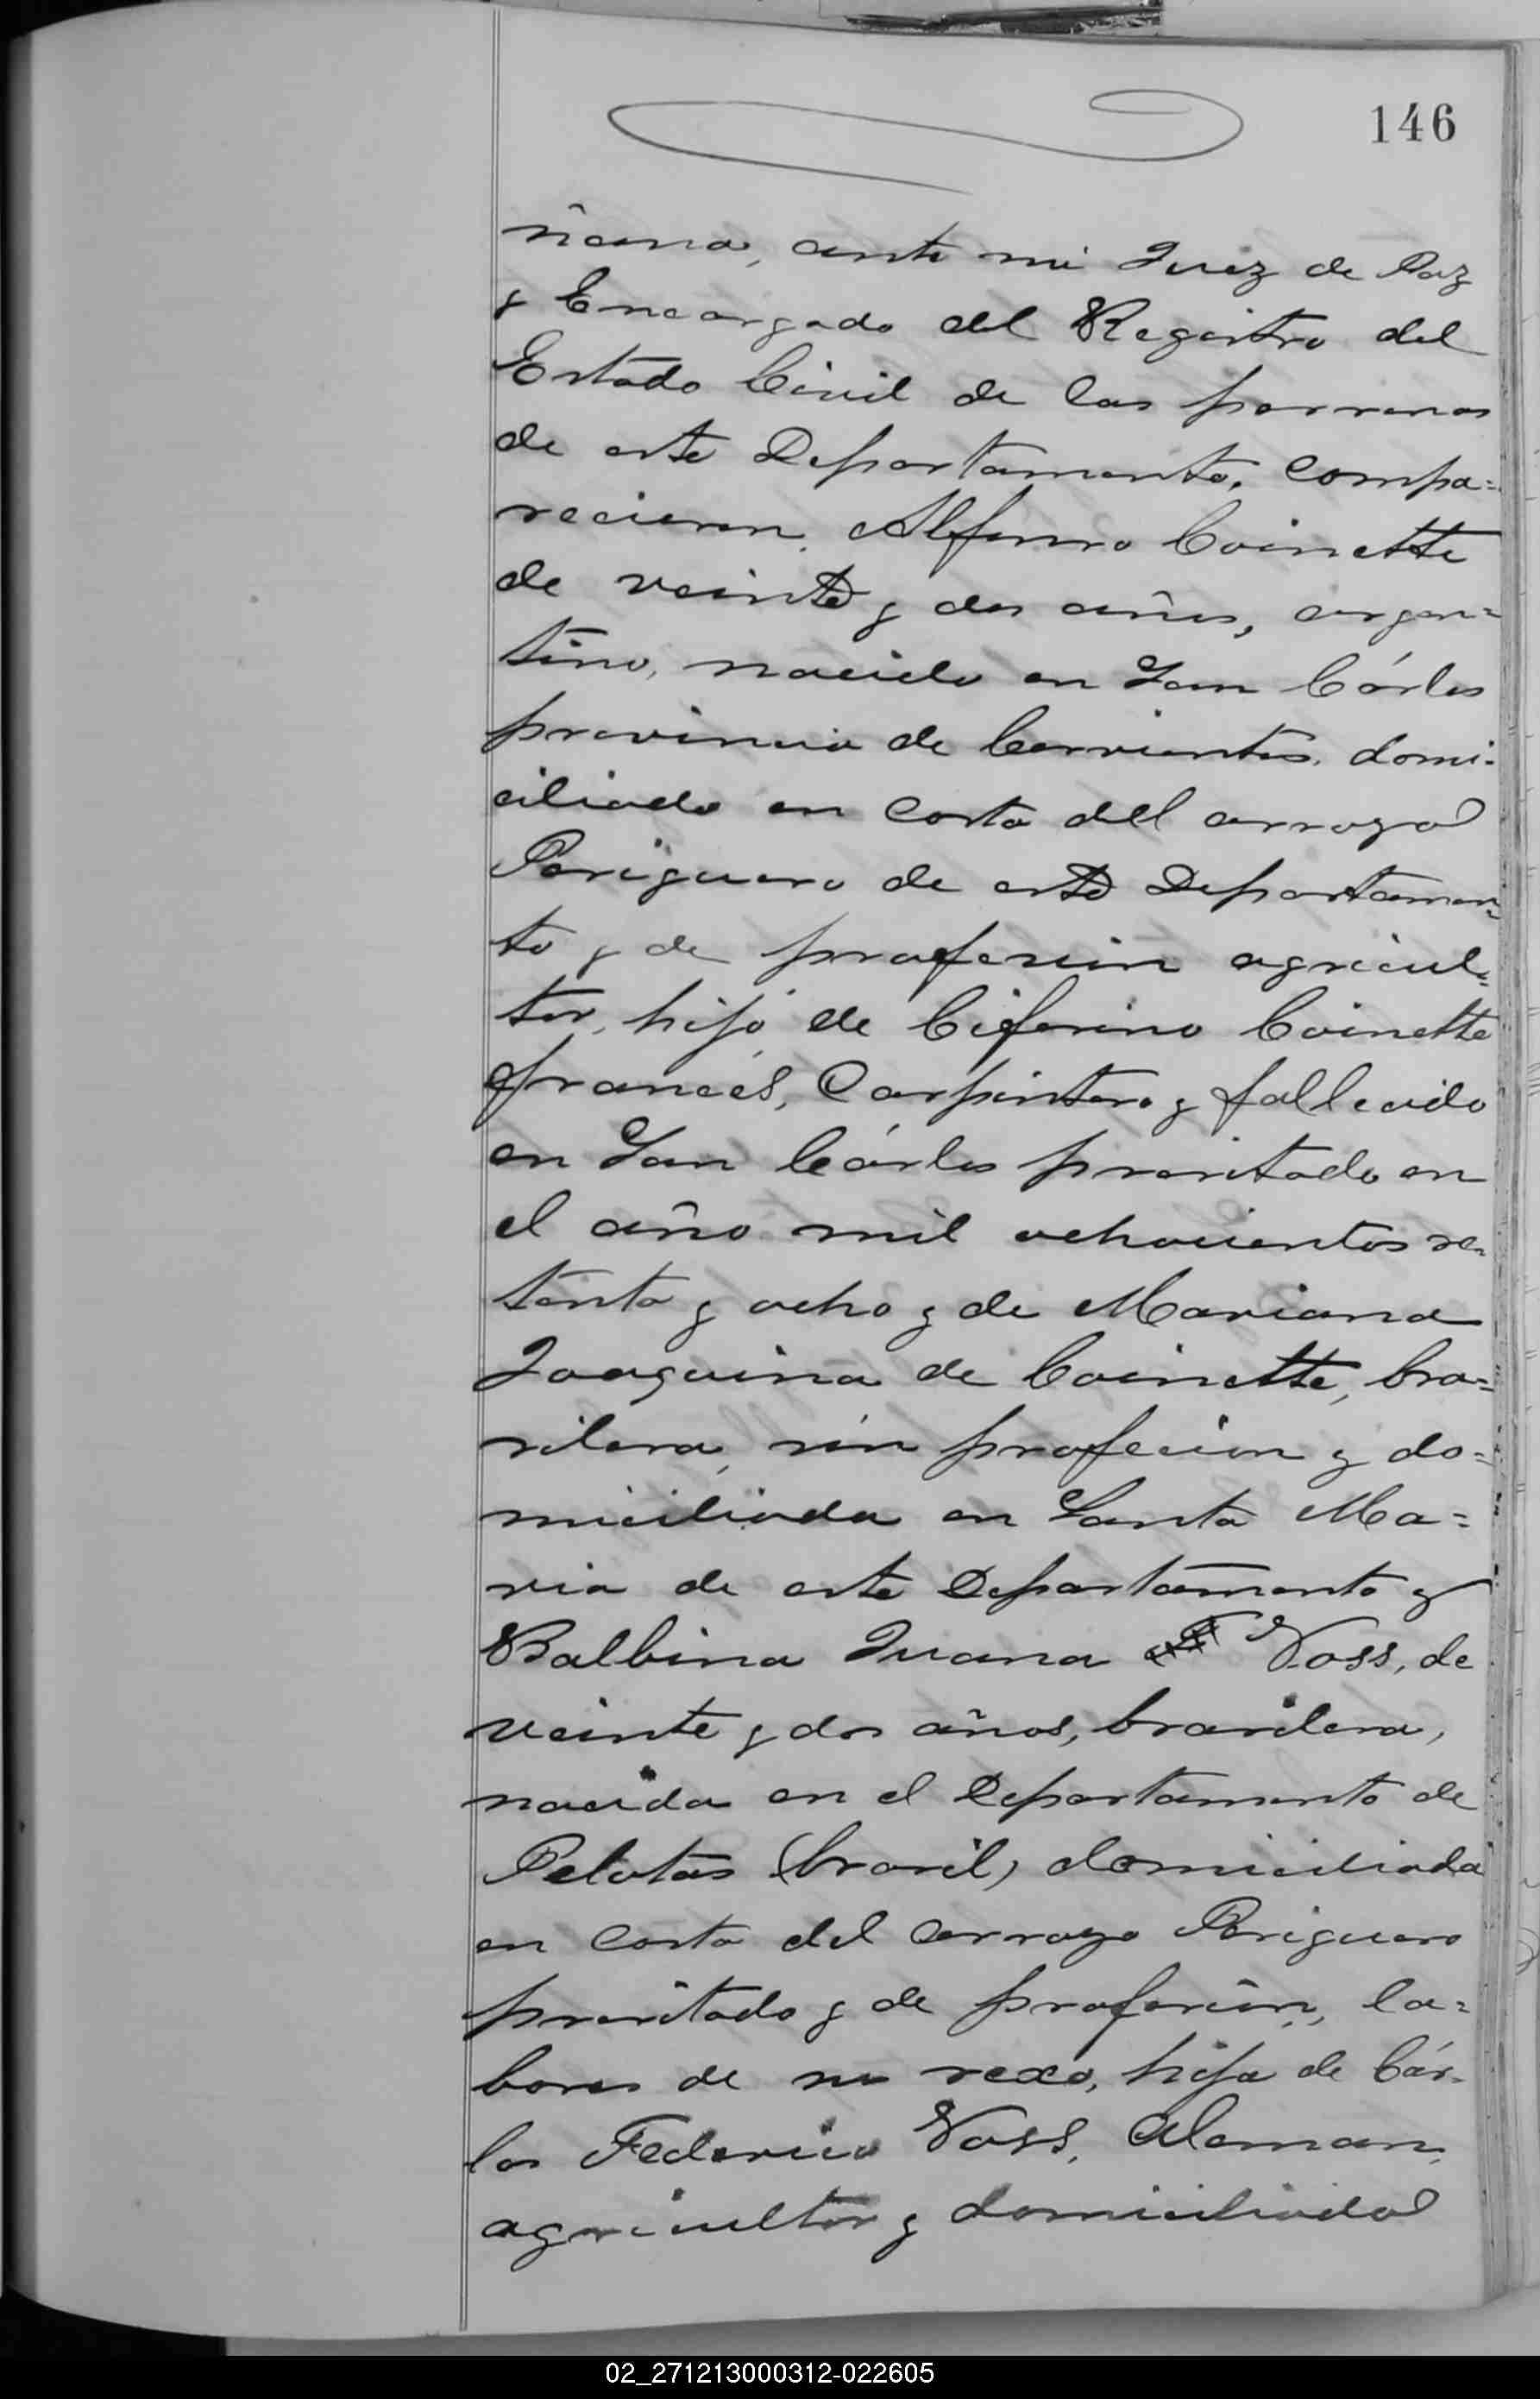 146
ñana, ante mi Juez de Paz
y Encargado del Registro del
Estado Civil de las personas
de este Departamento, compa=
recieron. Alfonso Coinette
de veinte y dos años, argen=
tino, nacido en San Cárlos
provincia de Corrientes, domi-
ciliado en costa del arroyo
Periguero de este Departamen=
to y de profesion agricul=
tor, hijo de Ciferino Coinette
francés, Carpintero y fallecido
en San Cárlos precitado en
el año mil ochocientos se-
tenta y ocho y de Mariana
Joaquina de Coinette, bra=
silera, sin profecion y do=
miciliada en Santa Ma=
ria de este Departamento y
Balbina Juana Voss, de
veinte y dos años, brasilera,
nacida en el Departamento de
Pelotas (brasil) domiciliada
en costa del arroyo Periguero
precitado y de profesion, la=
bores de su sexo, hija de Cár-
los Federico Voss, Aleman,
agricultor y domiciliado
02_271213000312-022605